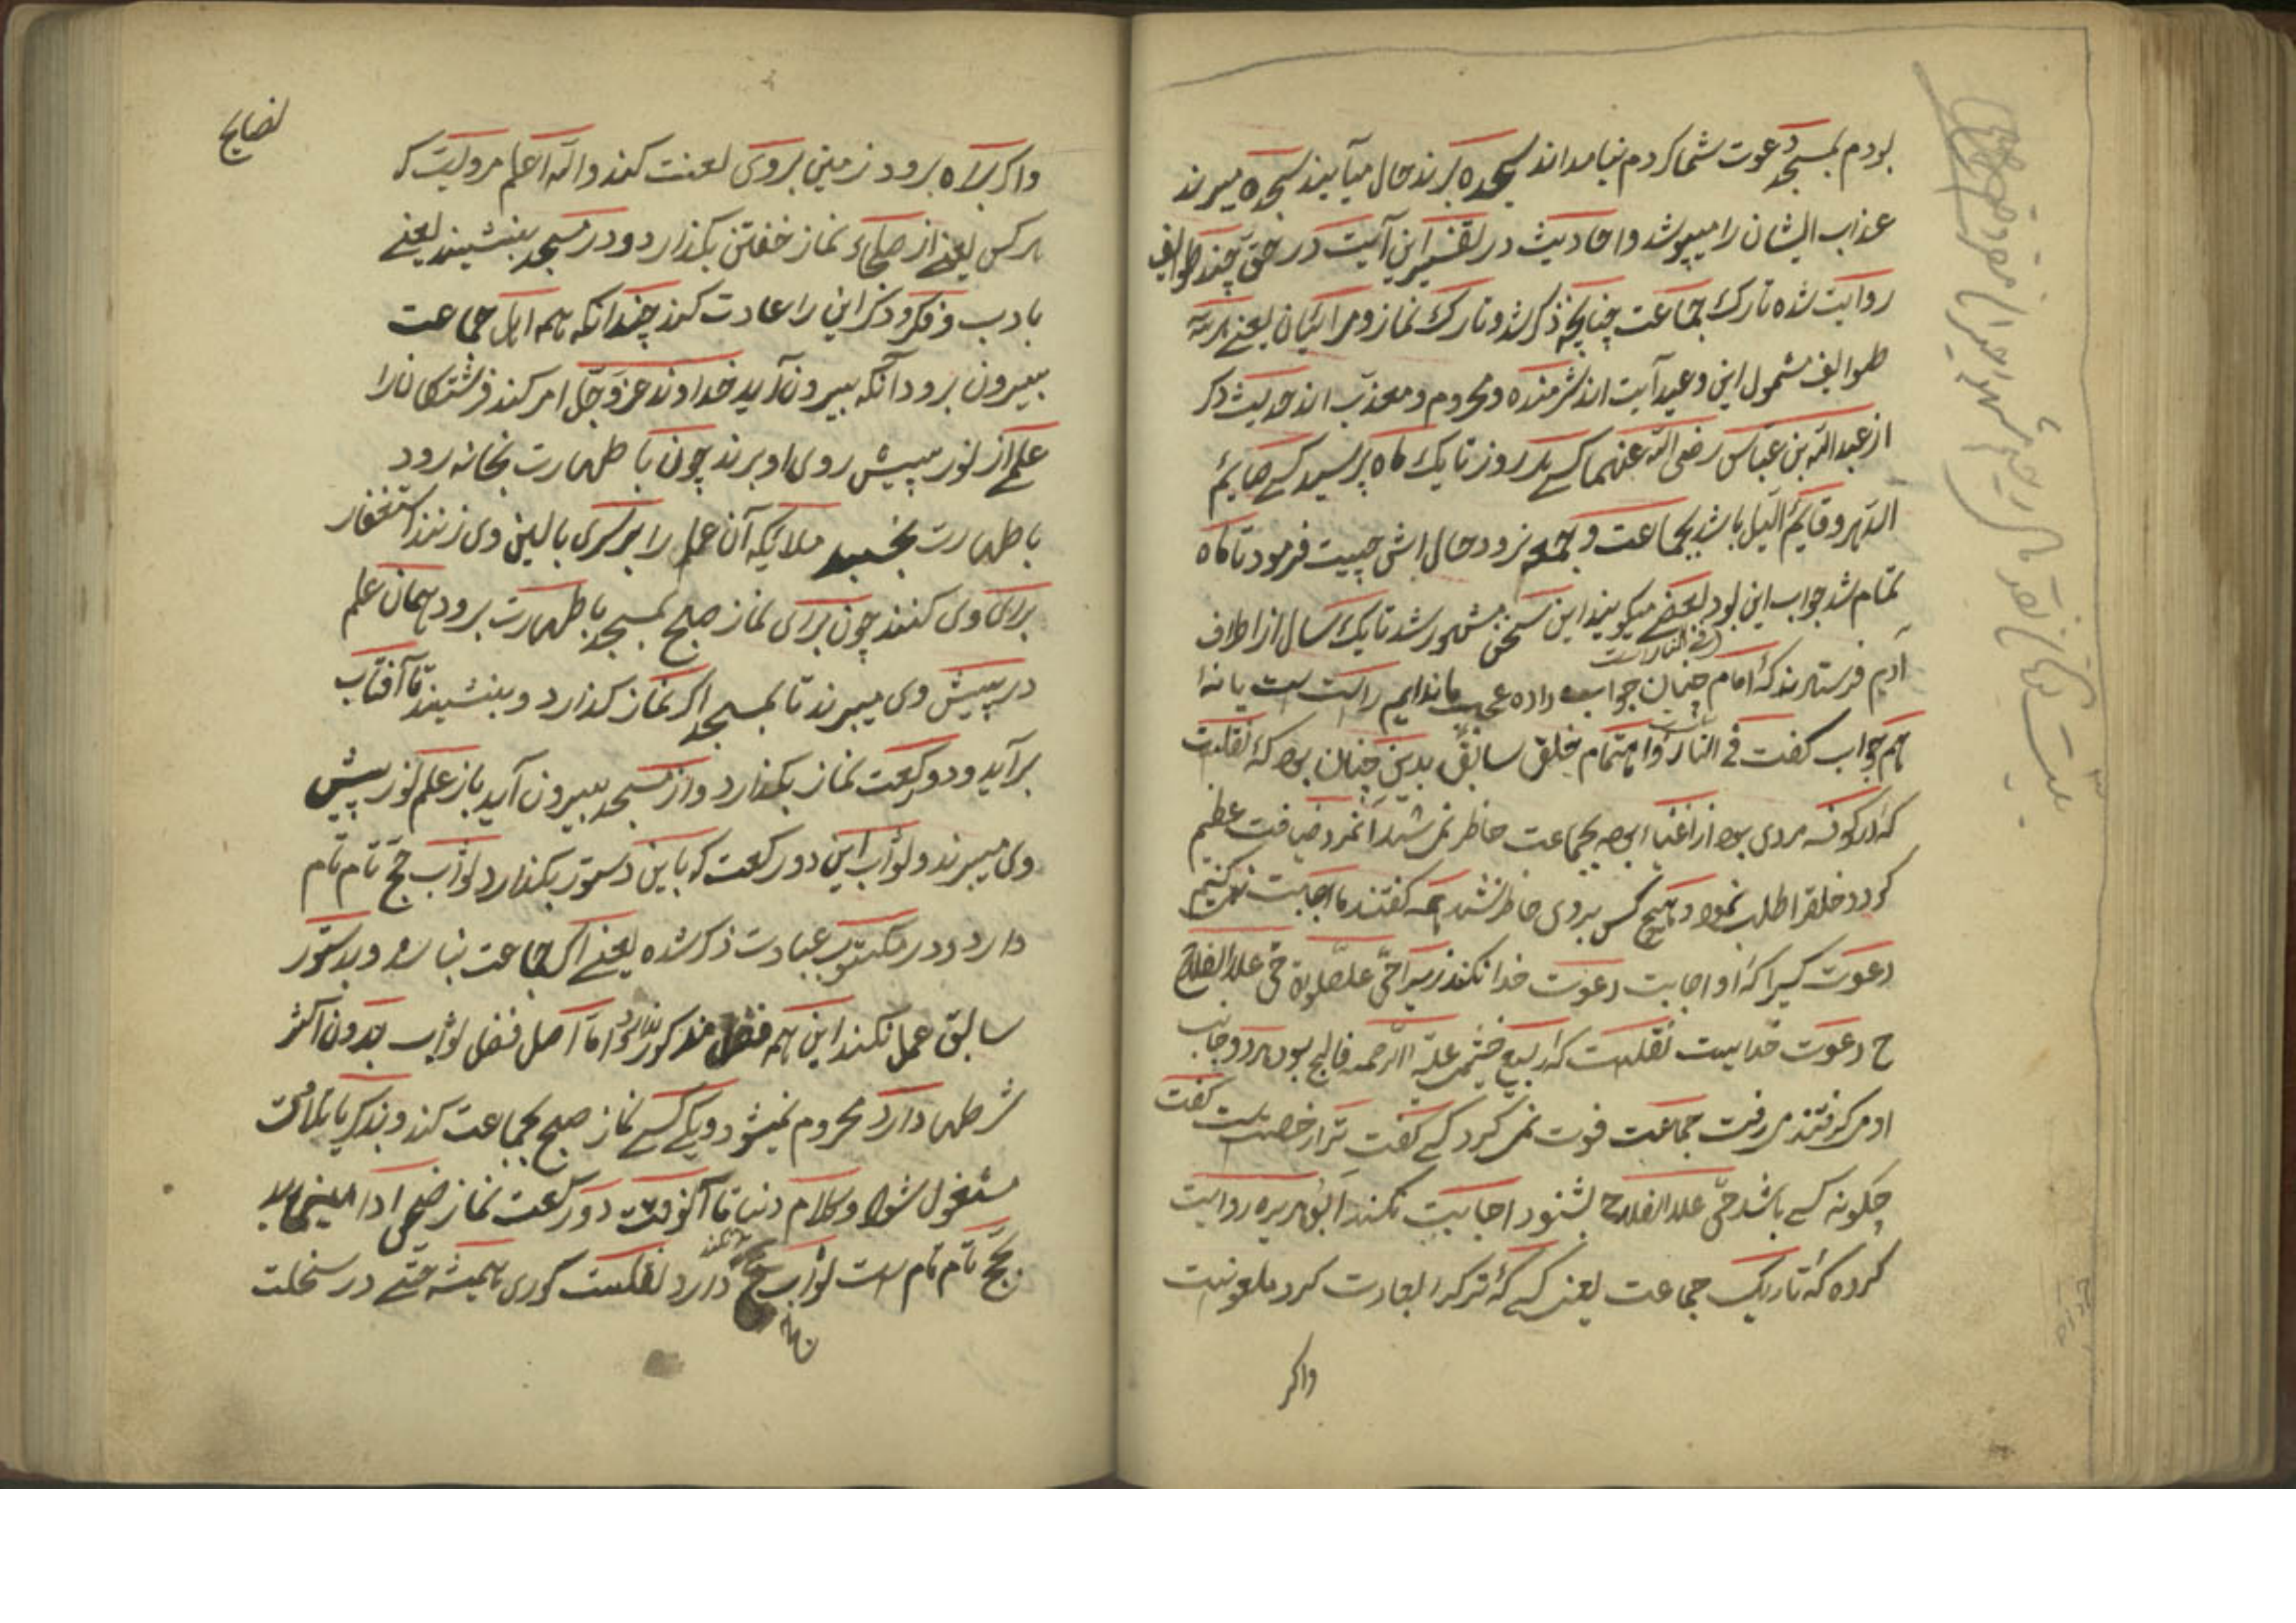 بودم بمسجد دعوت شما کردم نیامدند سجده برند حال میآیند سجده میبرند
عذاب ایشان را میپوشد واحادیث در تفسیر این آیت در حق چند طوایف
روایت شده تارک جماعت چنانچه ذکر شد و تارک نماز و مرائیان یعنی هر سه
طوایف مشمول این وعید آیت اند شرمنده و محروم و معذب اند حدیث دکر
از عبد الله بن عباس رضی الله عنهما کسے هر روز تا یک ماه پرسید کسے صایم
الدهر و قایم اللیل باشد بجماعت و جمعه نرود حال اش چیست فرمود تا ماه
تمام شد جواب این بود بعضے میکویند این سخن مشهور شد تا یک سال از اطراف
فے النار است
آدم فرستادند که امام چنان جواب داده عجب ماندایم راست ست یا نه
هم جواب کفت فے النار و اهتمام خلق سابق بدین چنان بود که نقلست
که در کوفه مردی بود از اغنیاء بجماعت حاظر نمی شد آنمرد ضیافت عظیم
کرد و خلق را طلب نمود و هیچ کس بروی حاظر نشد همه کفتند ما اجابت نمی کنیم
دعوت کسیرا که او اجابت دعوت خدا نکند زیرا حی علی الصلوة حی علی الفلاح
ح دعوت خداییست نقلست که ربیع خثیم علیه الرحمه فالج بود هر دو جانب
او می کرفتند می رفت جماعت فوت نمی کرد کسے کفت ترا رخصت ست کفت
چکونه کسے باشد حی علی الفلاح بشنود اجابیت نکند ابو هریره روایت
کرده که تاریک جماعت یعنی کسے که ترک را بعادت کرد ملعونست
واکر
نصایح
واکر براه برود زمینی بروی لعنت کند والله اعلم مرویست که
هر کس یعنے از صلحاء نماز خفتن بکذارد و در مسجد بنشیند یعنے
بادب و فکر و ذکر این را عادت کند چندانکه همه اهل جماعت
بیرون برود آنکه بیرون آید خداوند عز و جل امر کند فرشتکان را
علمے از نور پیش روی او برند چون با طهارت بخانه رود
با طهارت بخسبد ملایکه آن علم را بر سری بالین وی زنند استغفار
برای وی کنند چون برای نماز صبح بمسجد با طهارت برود همان علم
در پیش وی میبرند تا بمسجد اکر نماز کذارد و بنشیند تا آفتاب
برآید و دو رکعت نماز بکذارد و از مسجد بیرون آید باز علم نور پیش
وی میبرند و ثواب این دو رکعت که باین دستور بکذارد ثواب حج تام تام
دارد و در مکتوب عبادت ذکر شده یعنے اکر جماعت نباشد و بدستور
سابق عمل نکند این همه فضل مذکور ندارد اما اصل فضل ثواب بدون اکثر
شرطها دارد محروم نمیشود و یکے کسے نماز صبح بجماعت کند و بذکر یا تلاوت
مشغول شود و کلام دنیا تا آنوقت دو رکعت نماز ضحی ادا
حج تام تام ست ثواب حج دارد نقلست کوری همیشه حتے در سخلت